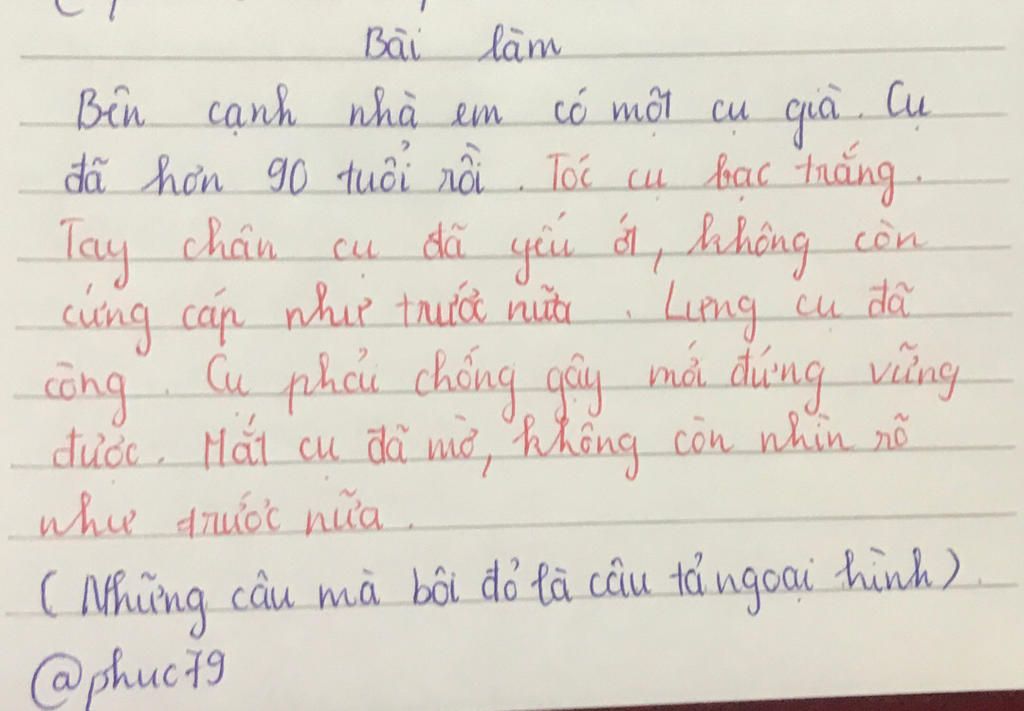 Bài làm
Bên cạnh nhà em có một cụ già. Cụ
đã hơn 90 tuổi rồi. Tóc cụ bạc trắng.
Tay chân cụ đã yếu ớt, không còn
cứng cáp như trước nữa. Lưng cụ đã
còng. Cụ phải chống gậy mới đứng vững
được. Mắt cụ đã mờ, không còn nhìn rõ
như trước nữa.
(Những câu mà bôi đỏ là câu tả ngoại hình)
@phuc79